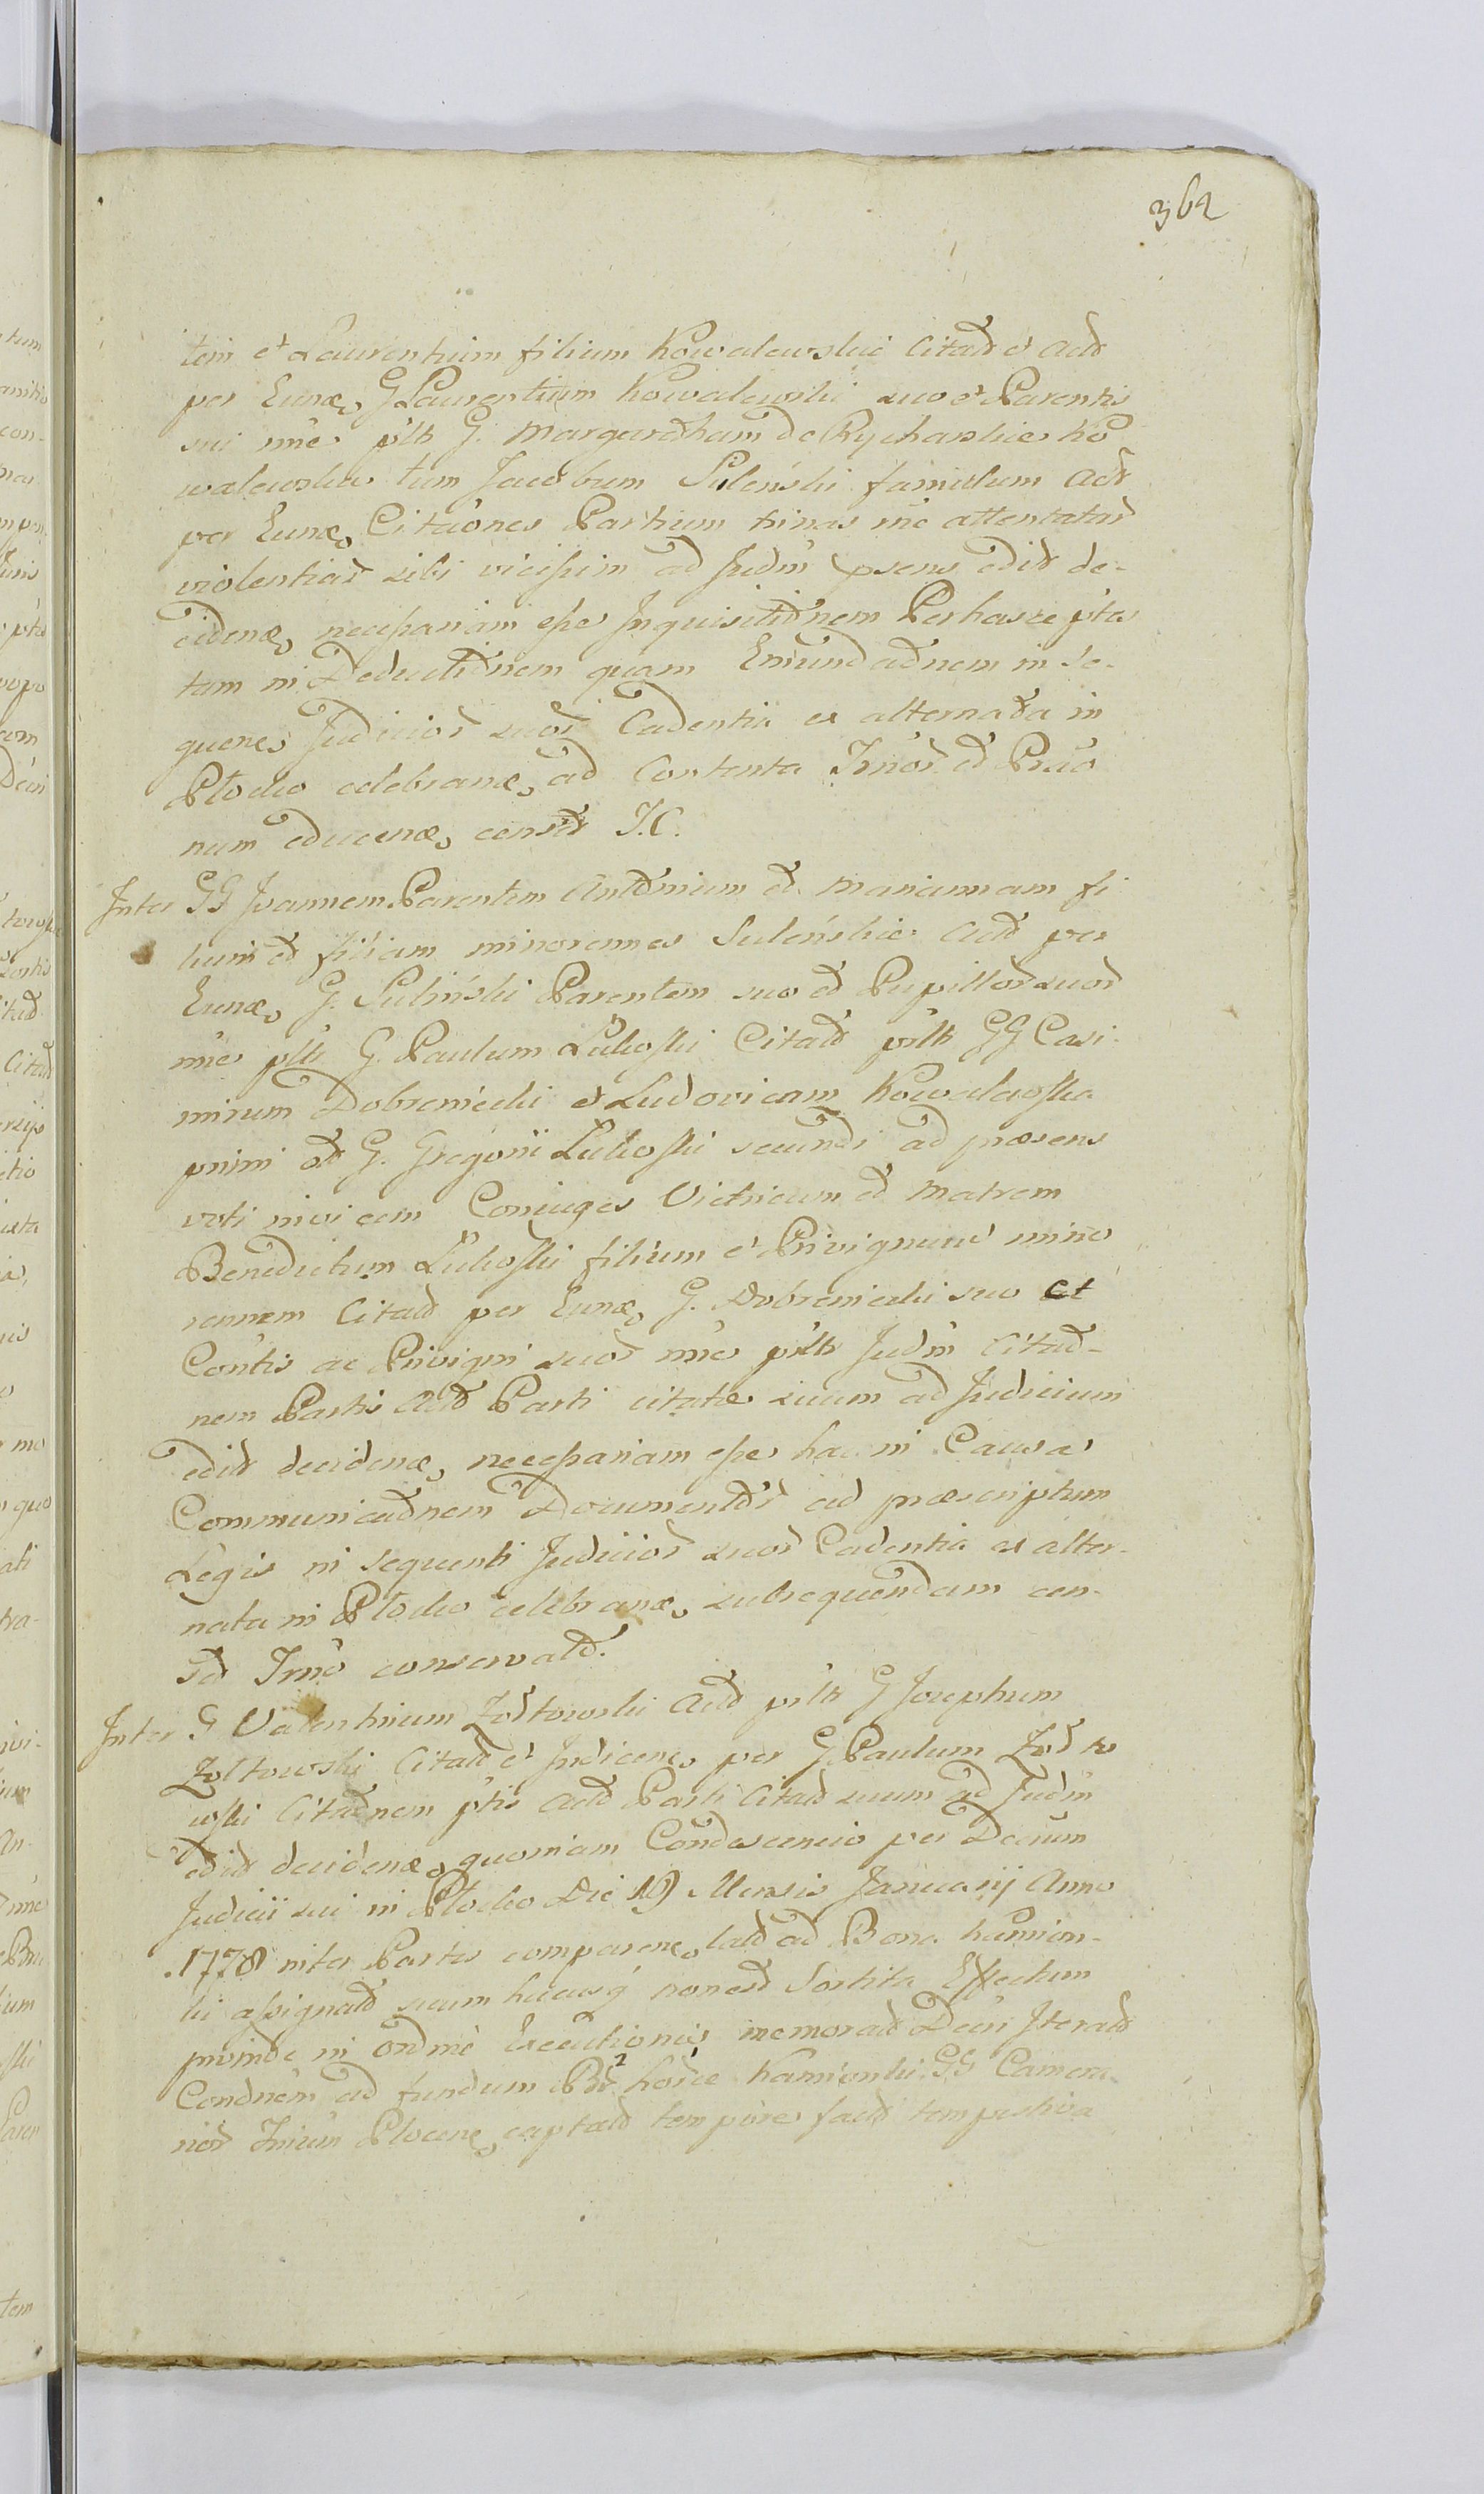 362
tem et Laurentium filium Kowalewskie Citat et Act
per Eund G Laurentium Kowalewski suo et Parentis
sui nne p'lt G. Margaretham de Rycharskie Ko
walewska tum Jacobum Suleński famulum Act
per Eund Citaones Partium hinas nne attentatar
violentiar sibi vicissim ad Judm psens edit de-
cidend necessariam esse Inquisitionem Perhasze ptes
tam in Deductionem quam Emundaonem in se-
quene Judicior suor Cadentia ex alternata in
Plocko celebrand ad Contenta Trior et Prao
num educend censet J.C.
Inter GG Joannem Parentem Antonium et Mariannam fi
lium et filiam minorennes Suleńskie Act per
Eund G. Suliński Parentem suo et Pupillor suor
nne plt G. Paulum Łukoski Citat p'lt GG Casi-
mirum Dobreniecki et Ludovicam Kowaleoska
primi et G. Gregorii Łukoski secundi ad præsens
voti invicem Coniuges Vitricum et Matrem
Benedictum Łukoski filium et Privignum mino
rennem Citat per Eund G. Dobreniecki suo et
Contis ac Privigni suor nne p'lt Judm Citao-
nem Partis Act Parti citatæ suum ad Judicium
edit decidend necessariam esse hac in Causa
Communicaonem Documentor ad præscriptum
Legis in sequenti Judicior suor Cadentia ex alter-
nata in Plocko celebrand subsequendam cen-
set Trno conservato.
Inter G Valentinum Zołtowski Act p'lt G Josephum
Zołtowski Citat et Judicene per G Paulum Zołto
wski Citaonem ptis Act Parti Citat suum ad Judm
edit decidend quoniam Condescencio per Decrum
Judicii sui in Plocko Die 19 Mensis Januarij Anno
1778 inter Partes comparene lat ad Bona Kamion-
ki assignat suum hucusq non est Sortita Effectum
proinde in ordine Executionis memorat Decri Iterat
Condnem ad fundum Bor 2 hær 1 Kamionki GG Camera-
rior Trium Plocens captato tempore facto tempestiva